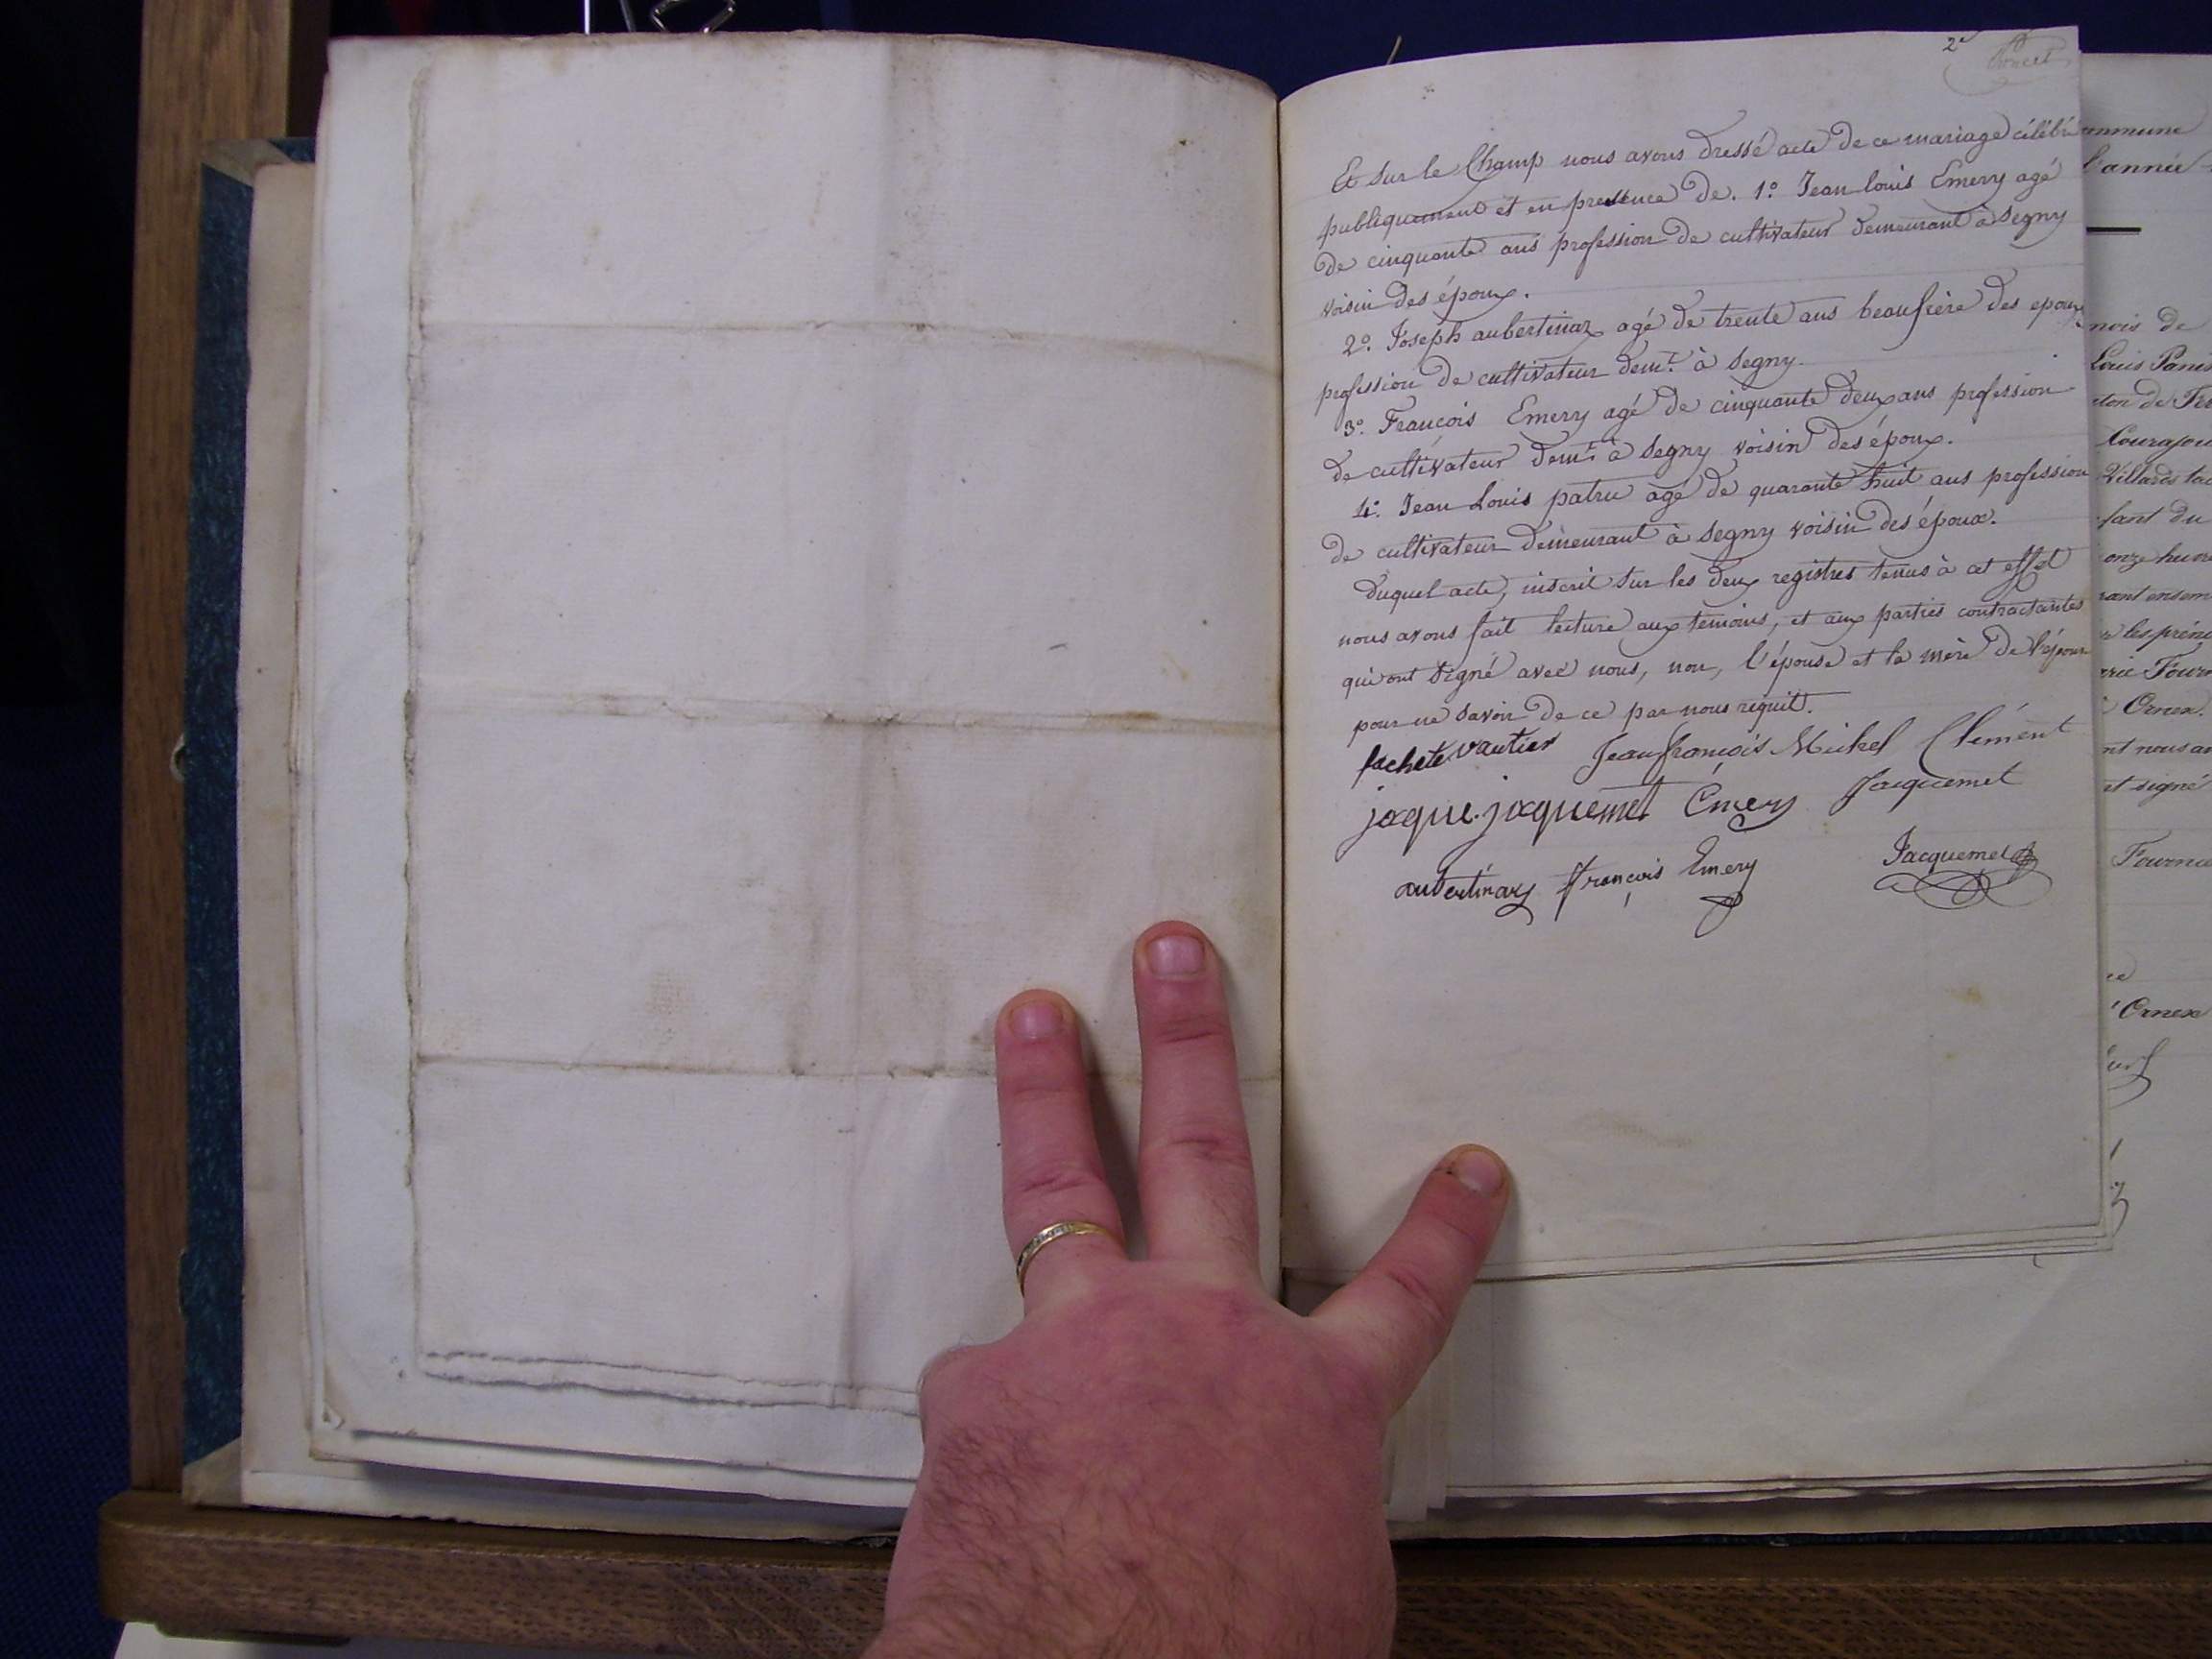 2e
Et sur le Champ nous avons dressé acte de ce mariage célébré
publiquement et en presence de. 1º. Jean louis Emery agé
de cinquante ans profession de cultivateur demeurant à Segny
voisin des époux.
2º. Joseph aubertinaz agé de trente ans beaufrère des epoux
profession de cultivateur demt. à Segny.
3º. Francois Emery agé de cinquante deux ans profession
de cultivateur demt. à Segny voisin des époux.
4º. Jean Louis patru agé de quarante huit ans profession
de cultivateur demeurant à Segny voisin des époux.
Duquel acte, inscrit sur les deux registres tenus à cet effet
nous avons fait lecture aux temoins, et aux parties contractantes
qui ont signé avec nous, non, l'épouse et la mère de l'époux
pour ne savoir de ce par nous réquit.
fachete vautier Jeanfrançois Michel Clément
jaque jaquemet Emery Jacquemet
aubertinaz françois Emery Jacquemet
ommune
l'année
mois de
Louis Panis
Courajou
Villards
fant du
onze heure
rant ensem
les préno
rie Fourn
Ornex.
nt nous av
et signé
Fournie
ce
Ornex